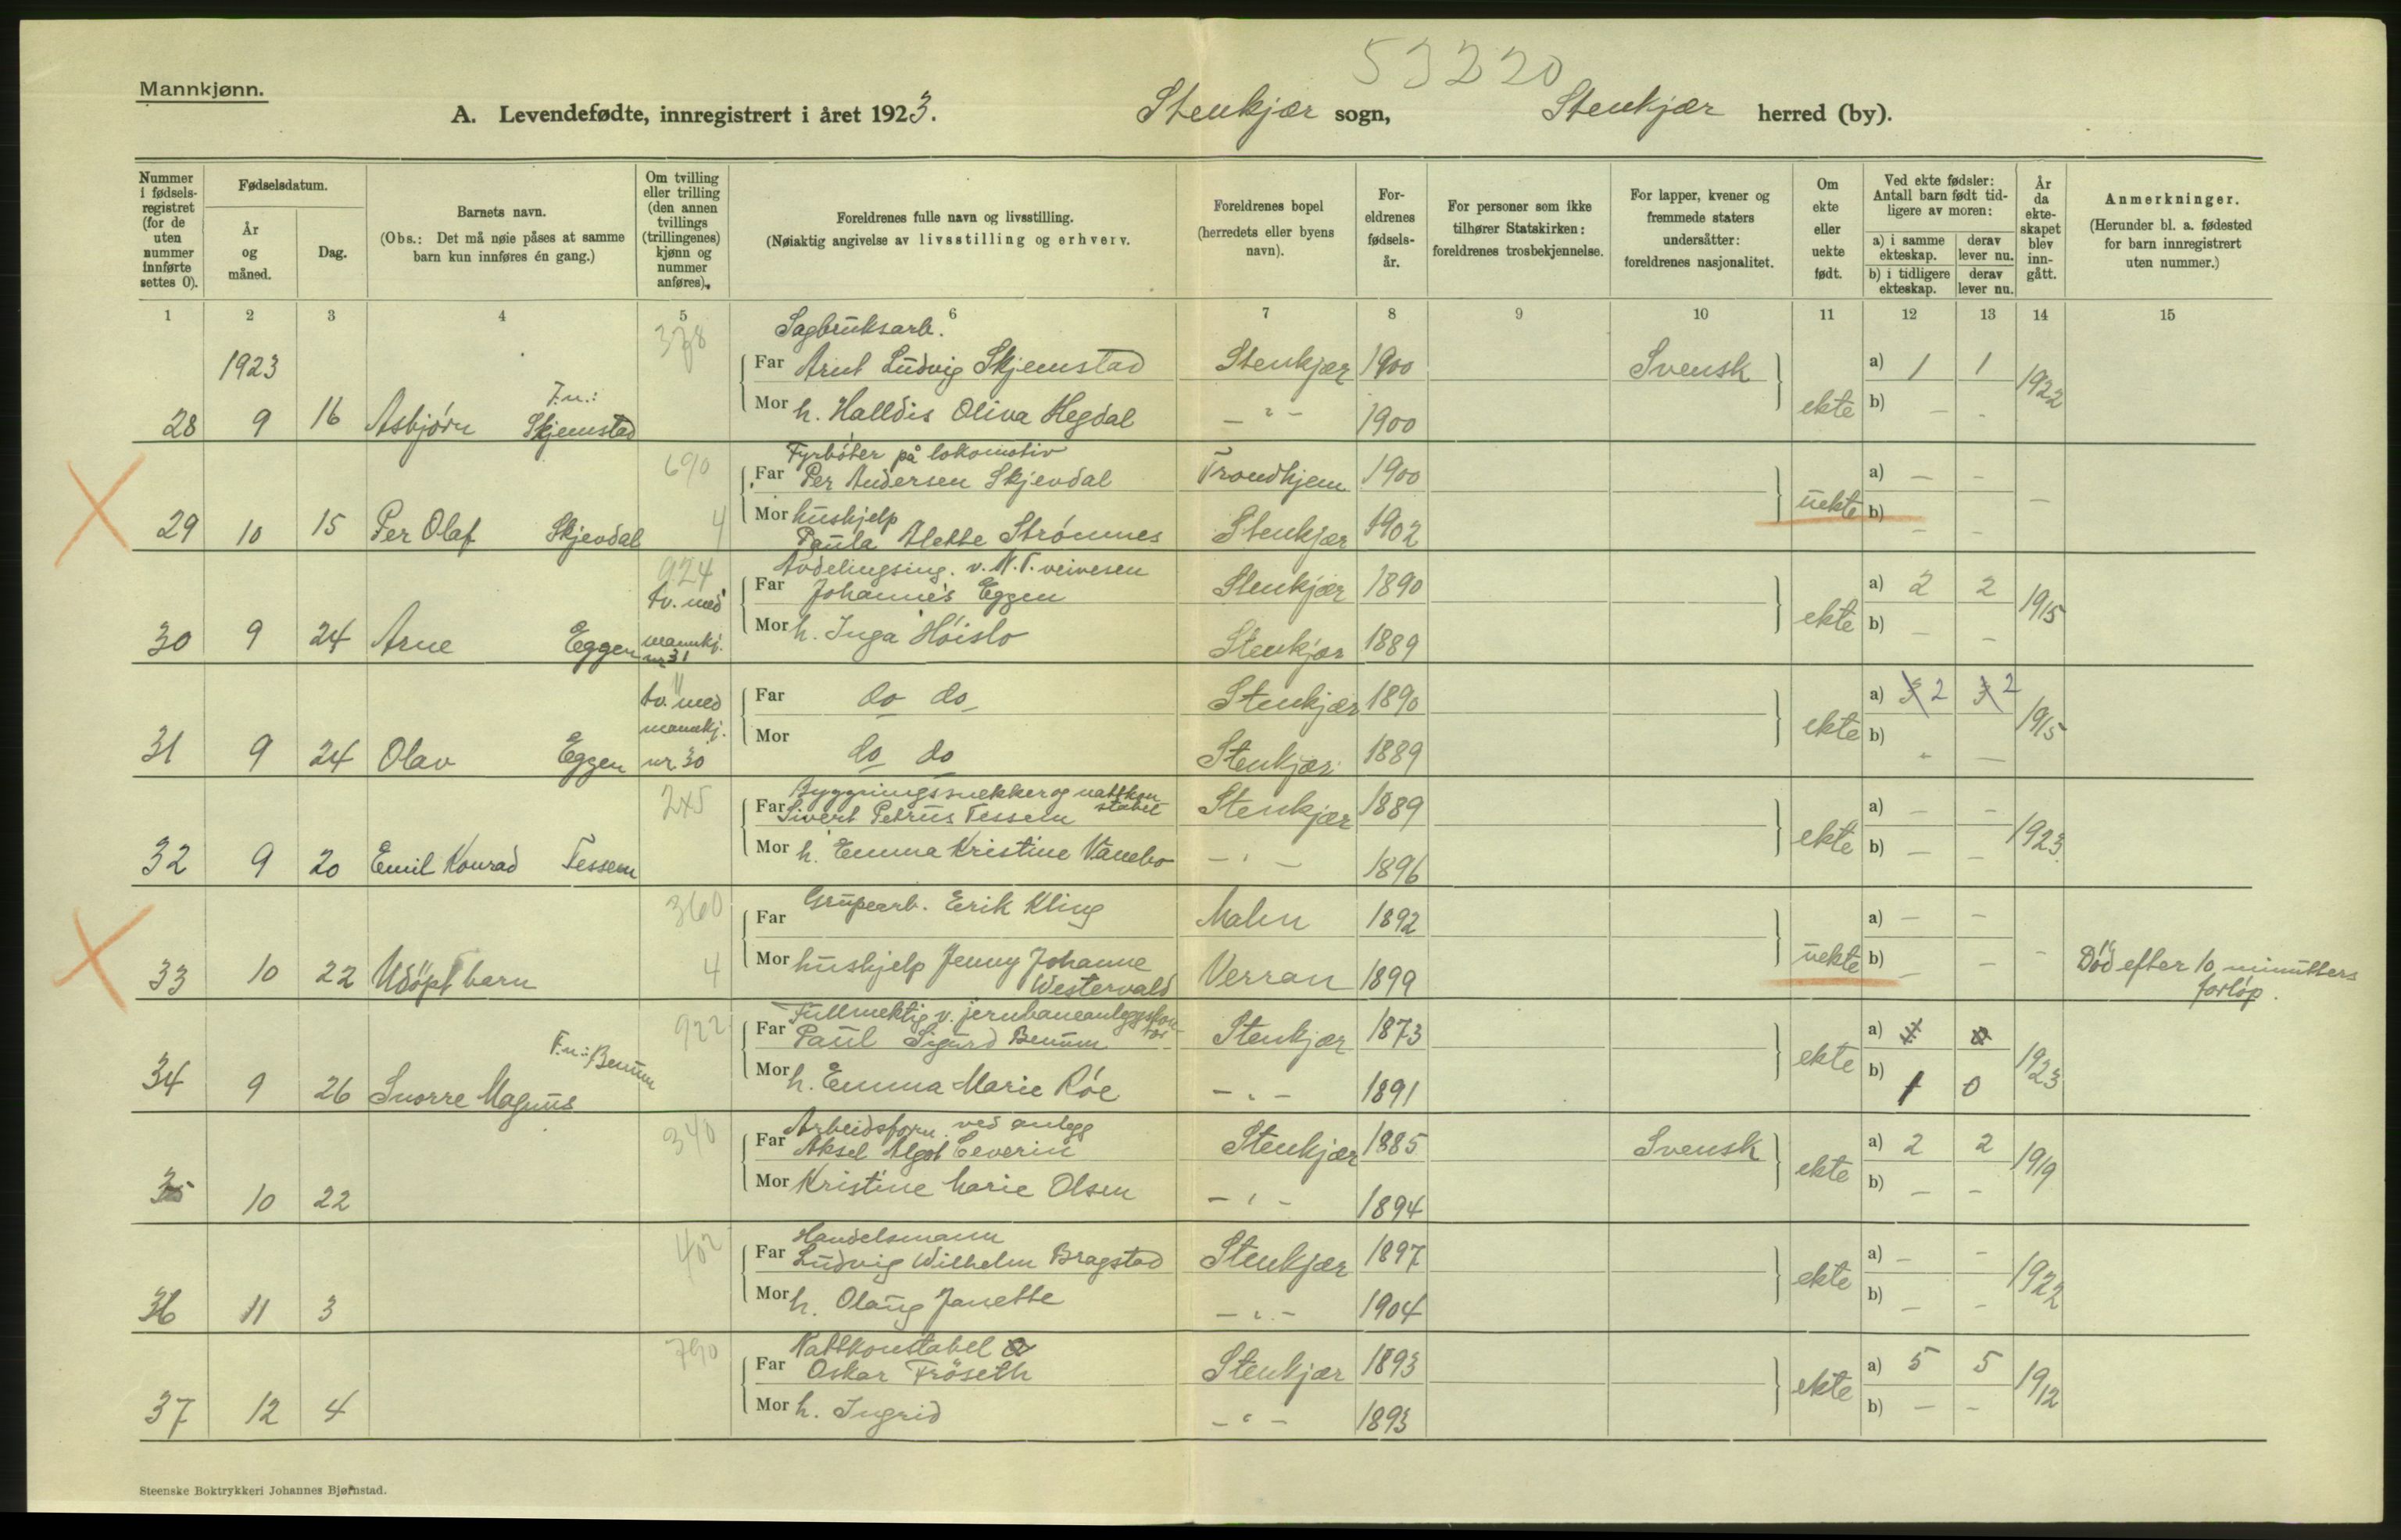 53220
Mannkjønn.
A. Levendefødte, innregistrert i året 1923. Stenkjær sogn, Stenkjær herred (by).
Nummer i fødsels-registret (for de uten nummer innførte settes 0).
Fødselsdatum.
År og måned.
Dag.
Barnets navn.
(Obs.: Det må nøie påses at samme barn kun innføres én gang.)
Om tvilling eller trilling (den annen tvillings (trillingenes) kjønn og nummer anføres).
Foreldrenes fulle navn og livsstilling.
(Nøiaktig angivelse av livsstilling og erhverv.
Foreldrenes bopel (herredets eller byens navn).
For-eldrenes fødsels-år.
For personer som ikke tilhører Statskirken: foreldrenes trosbekjennelse.
For lapper, kvener og fremmede staters undersåtter: foreldrenes nasjonalitet.
Om ekte eller uekte født.
Ved ekte fødsler: Antall barn født tid-ligere av moren:
a) i samme ekteskap. derav lever nu.
b) i tidligere ekteskap. derav lever nu.
År da ekte-skapet blev inn-gått.
Anmerkninger.
(Herunder bl. a. fødested for barn innregistrert uten nummer.)
1 2 3 4 5 6 7 8 9 10 11 12 13 14 15
378 Sagbruksarb.
1923 Far Arnt Ludvig Skjemstad Stenkjær 1900 Svensk a) 1 1 1922
F.n.:
28 9 16 Asbjørn Skjemstad Mor h. Halldis Oliva Hegdal - " - 1900 ekte b) - -
690 Fyrbøter på lokomotiv
Far Per Andersen Skjevdal Trondhjem 1900 a) - - -
29 10 15 Per Olaf Skjevdal 4 Mor hushjelp Paula Alette Strømnes Stenkjær 1902 uekte b) - -
924 Avdelingsing. v. N.T. veivesen
tv. med Far Johannes Eggen Stenkjær 1890 a) 2 2 1915
30 9 24 Arne Eggen mannkj. nr 31 Mor h. Inga Høislo Stenkjær 1889 ekte b) - -
"
tv. med Far do do Stenkjær 1890 a) 3 2 3 2 1915
31 9 24 Olav Eggen mannkj. nr 30 Mor do do Stenkjær 1889 ekte b) - -
245 Byggningssnekker og nattkonstabel
Far Sivert Petrus Tessem Stenkjær 1889 a) - - 1923
32 9 20 Emil Konrad Tessem Mor h. Emma Kristine Vanebo - " - 1896 ekte b) - -
360 Far Grupearb. Erik Kling Malm 1892 a) - - -
33 10 22 Udöpt barn 4 Mor hushjelp Jenny Johanne Westervald Verran 1899 uekte b) - - Död efter 10 minutters forløp.
922 Fullmektig v. jernbaneanleggskontor
Far Paul Sigurd Benum Stenkjær 1873 a) 0 1923
F.n.: Benum
34 9 26 Snorre Magnus Mor h. Emma Marie Røe - " - 1891 ekte b) 1 0
340 Arbeidsform. ved anlegg
Far Aksel Algot Ceverin Stenkjær 1885 Svensk a) 2 2 1919
35 10 22 Mor Kristine Marie Olsen - " - 1894 ekte b) - -
402 Handelsmann
Far Ludvig Wilhelm Bragstad Stenkjær 1897 a) - - 1922
36 11 3 Mor h. Olaug Janette - " - 1904 ekte b) - -
790 Nattkonstabel
Far Oskar Fröseth Stenkjær 1893 a) 5 5 1912
37 12 4 Mor h. Ingrid - " - 1893 ekte b) - -
Steenske Boktrykkeri Johannes Bjørnstad.